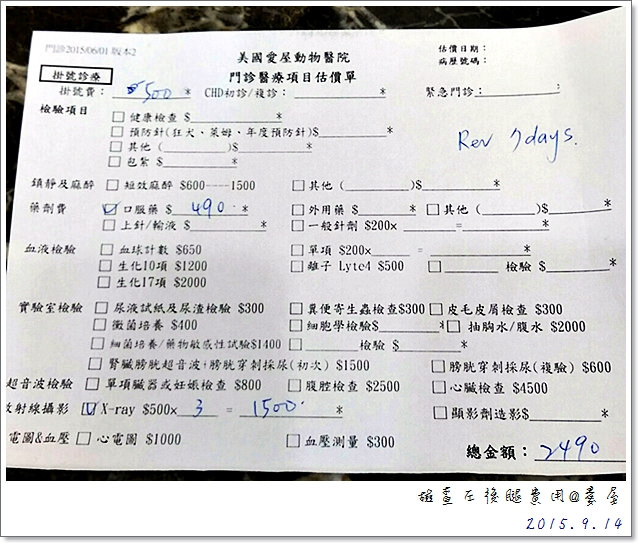 門診2015/06/01 版本2
美國愛屋動物醫院
估價日期:
病歷號碼:
門診醫療項目估價單
掛號診療
掛號費: $500 * CHD初診/複診: * 緊急門診:
檢驗項目
健康檢查 $ *
預防針(狂犬、萊姆、年度預防針)$ *
其他 ( )$ *
包紮 $ *
Rev 7days.
鎮靜及麻醉 短效麻醉 $600----1500 其他 ( )$ *
藥劑費 口服藥 $ 490. * 外用藥 $ * 其他 ( )$ *
上針/輸液 $ * 一般針劑 $200x = *
血液檢驗 血球計數 $650 單項 $200x = *
生化10項 $1200 離子 Lyte4 $500 檢驗 $ *
生化17項 $2000
實驗室檢驗 尿液試紙及尿渣檢驗 $300 糞便寄生蟲檢查$300 皮毛皮屑檢查 $300
黴菌培養 $400 細胞學檢驗$ * 抽胸水/腹水 $2000
細菌培養/藥物敏感性試驗$1400 檢驗 $ *
腎臟膀胱超音波+膀胱穿刺採尿(初次) $1500 膀胱穿刺採尿(複驗) $600
超音波檢驗 單項臟器或妊娠檢查 $800 腹腔檢查 $2500 心臟檢查 $4500
放射線攝影 X-ray $500x 3 = 1500. * 顯影劑造影$ *
電圖&血壓 心電圖 $1000 血壓測量 $300
總金額: 2490
檢查左後腿費用@愛屋
2015.9.14